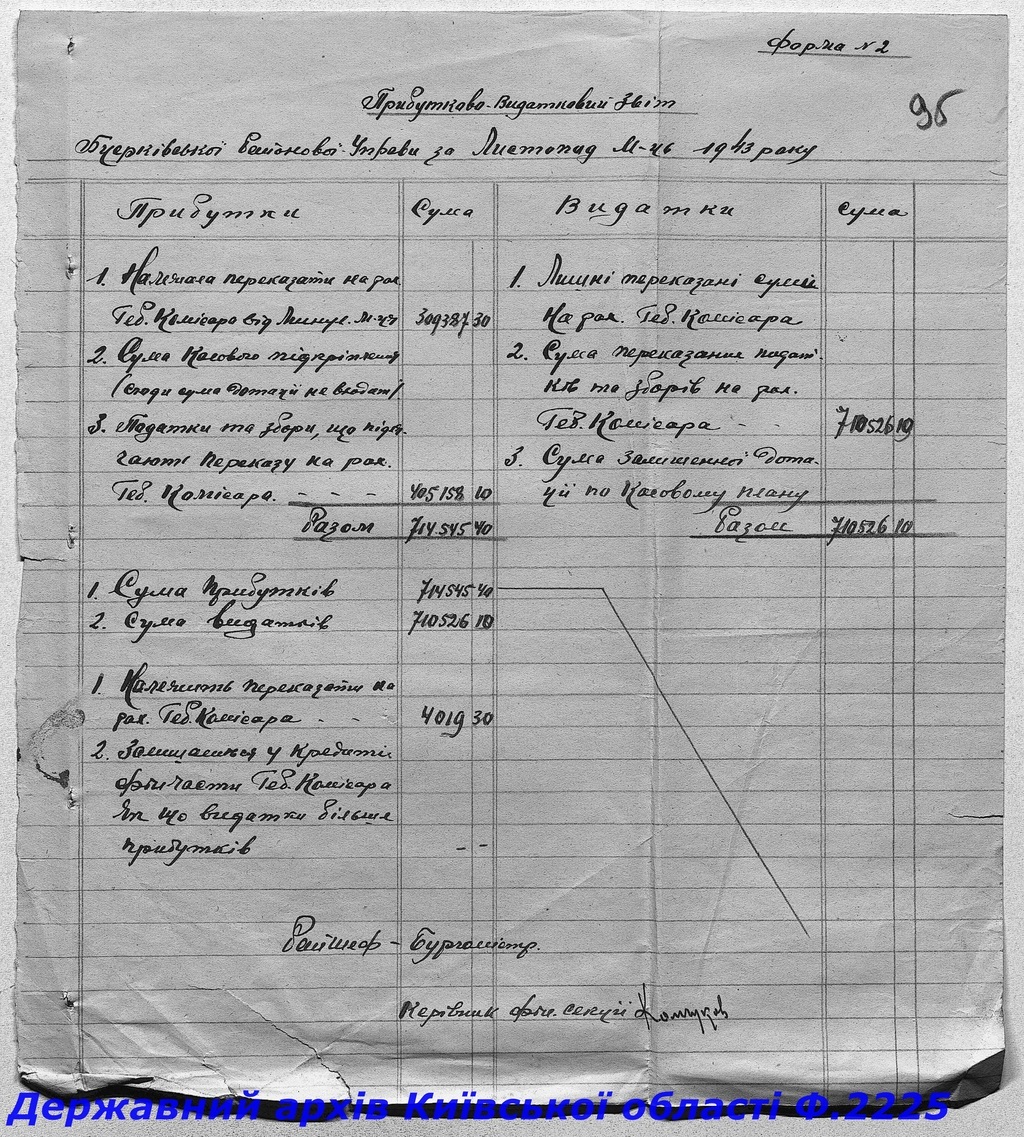 Форма №2
96
Прибутково-Видатковий Звіт
Б/церківської Районової Управи за Листопад М-ць 1943 року
Прибутки Сума Видатки Сума
1. Належала переказати на рах.
Геб. Комісара від Минул. М-ця 309387 30
2. Сума Касового підкріплення
(сюди сума дотації не входит)
3. Податки та збори, що підля-
гають переказу на рах.
Геб. Комісара. - - - 405158 10
Разом 714.545 40
1. Лишні переказані суми
на рах. Геб. Комісара
2. Сума переказаних подат-
ків та зборів на рах.
Геб. Комісара - - 710526 10
3. Сума залишенної дота-
ції по Касовому плану
Разом 710526 10
1. Сума прибутків 714545 40
2. Сума видатків 710526 10
1. Належить переказати на
рах. Геб. Комісара - - 4019 30
2. Залишається у кредиті
Геб. Комісара
як що видатки більше
прибутків - -
Райшеф - Бургомістр.
Керівник фін. секції
Державний архів Київської області Ф.2225